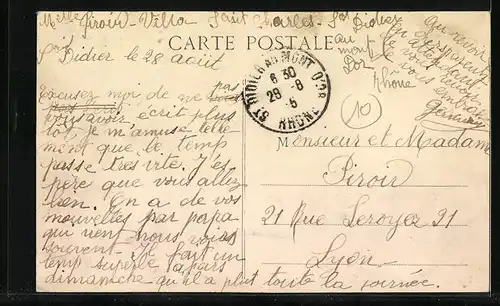 Melle Piroir - Villa Saint Charles - St Didier
au
mont
Dor
Rhône
CARTE POSTALE
St Didier le 28 août
Excusez moi de ne pas
vous avoir écrit plus
tôt, je m'amuse telle
ment que le temps
passe très vite. J'es
père que vous allez
bien. On a de vos
nouvelles par papa
qui vient nous voir
souvent - Il fait un
temp superbe à part
dimanche qu'il a plut toute la journée.
Au revoir
je vous
embrasse
ST DIDIER AU MONT D'OR
6 30
29 - 8
5
RHÔNE
10
Monsieur et Madame
Piroir
21 Rue Leroyer 21
Lyon